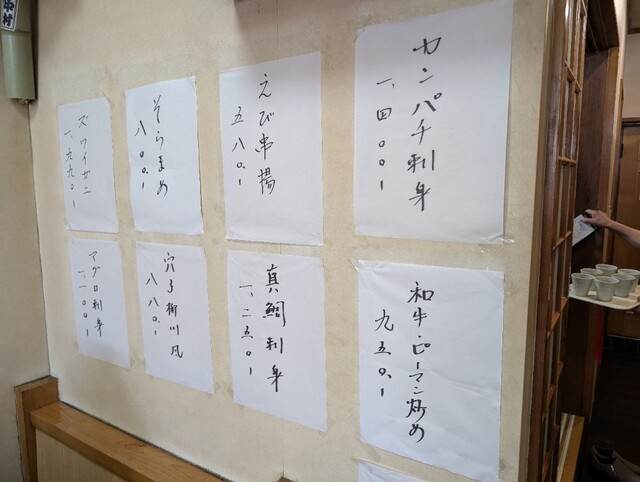 カンパチ刺身
一、四〇〇、ー
えび串揚
五八〇、ー
そらまめ
八〇〇、ー
ズワイガニ
一、九九〇、ー
和牛・ピーマン炒め
九五〇、ー
真鯛刺身
一、二五〇、ー
穴子柳川風
八八〇、ー
マグロ刺身
一、一〇〇、ー
中村